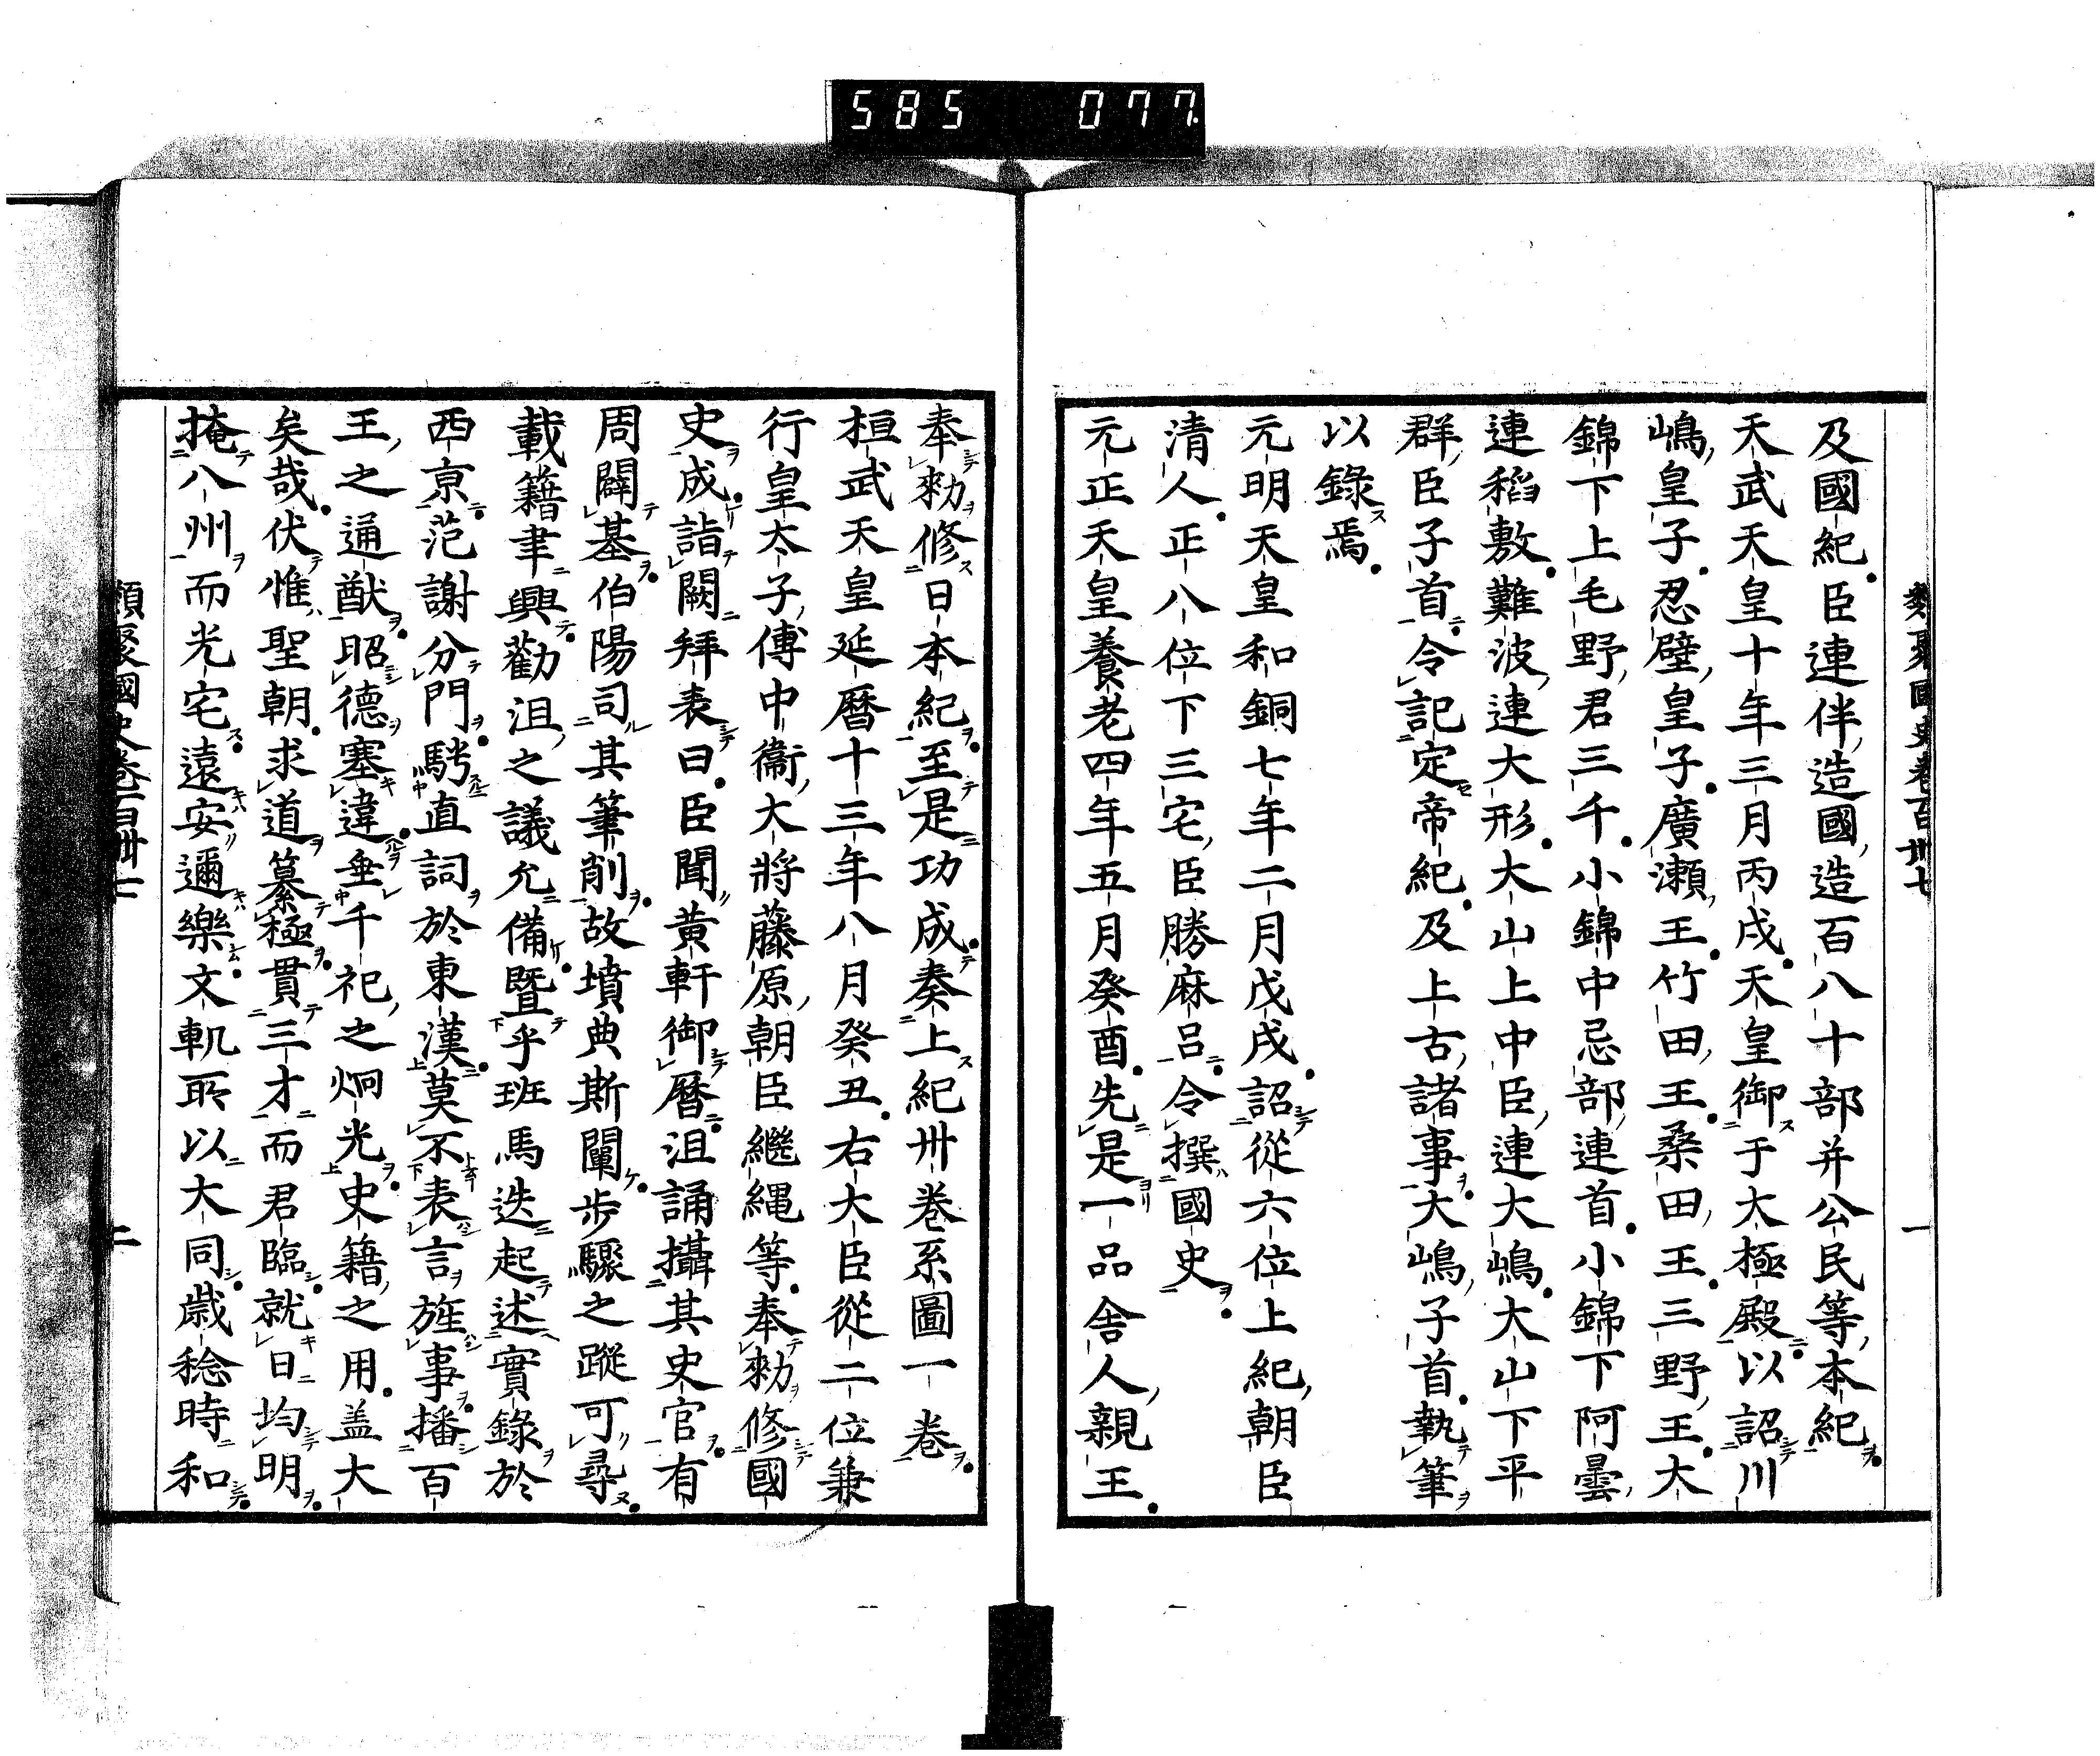 585 077
類聚國史卷百卅七 一
及國紀臣連伴造國造百八十部并公民等本紀
天武天皇十年三月丙戌天皇御于大極殿以詔川
嶋皇子忍壁皇子廣瀬王竹田王桑田王三野王大
錦下上毛野君三千小錦中忌部連首小錦下阿曇
連稻敷難波連大形大山上中臣連大嶋大山下平
群臣子首令記定帝紀及上古諸事大嶋子首執筆
以錄焉
元明天皇和銅七年二月戊戌詔從六位上紀朝臣
清人正八位下三宅臣勝麻呂令撰國史
元正天皇養老四年五月癸酉先是一品舍人親王
奉勑修日本紀至是功成奏上紀卅卷系圖一卷
桓武天皇延曆十三年八月癸丑右大臣從二位兼
行皇太子傅中衞大將藤原朝臣繼縄等奉勑修國
史成詣闕拜表曰臣聞黃軒御曆沮誦攝其史官有
周闢基伯陽司其筆削故墳典斯闡步驟之蹤可尋
載籍聿興勸沮之議允備暨乎班馬迭起述實錄於
西京范謝分門騁直詞於東漢莫不表言旌事播百
王之通猷昭德塞違垂千祀之炯光史籍之用盖大
矣哉伏惟聖朝求道纂極貫三才而君臨就日均明
掩八州而光宅遠安邇樂文軌所以大同歲稔時和
類聚國史卷百卅七 二